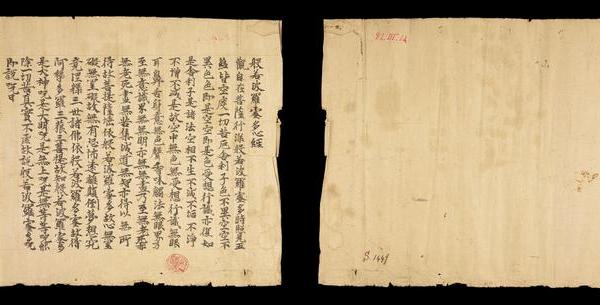 般若波羅蜜多心經
觀自在菩薩行深般若波羅蜜多時照見五
蘊皆空度一切苦厄舍利子色不異空空不
異色色即是空空即是色受想行識亦復如
是舍利子是諸法空相不生不滅不垢不淨
不增不減是故空中無色無受想行識無眼
耳鼻舌身意無色聲香味觸法無眼界乃
至無意識界無無明亦無無明盡乃至無老死亦
無老死盡無苦集滅道無智亦無得以無所
得故菩提薩埵依般若波羅蜜多故心無罣
礙無罣礙故無有恐怖遠離顛倒夢想究
竟涅槃三世諸佛依般若波羅蜜多故得
阿耨多羅三藐三菩提故知般若波羅蜜多
是大神咒是大明咒是無上咒是無等等咒能
除一切苦真實不虛故說般若波羅蜜多咒
即說咒曰
S.1449